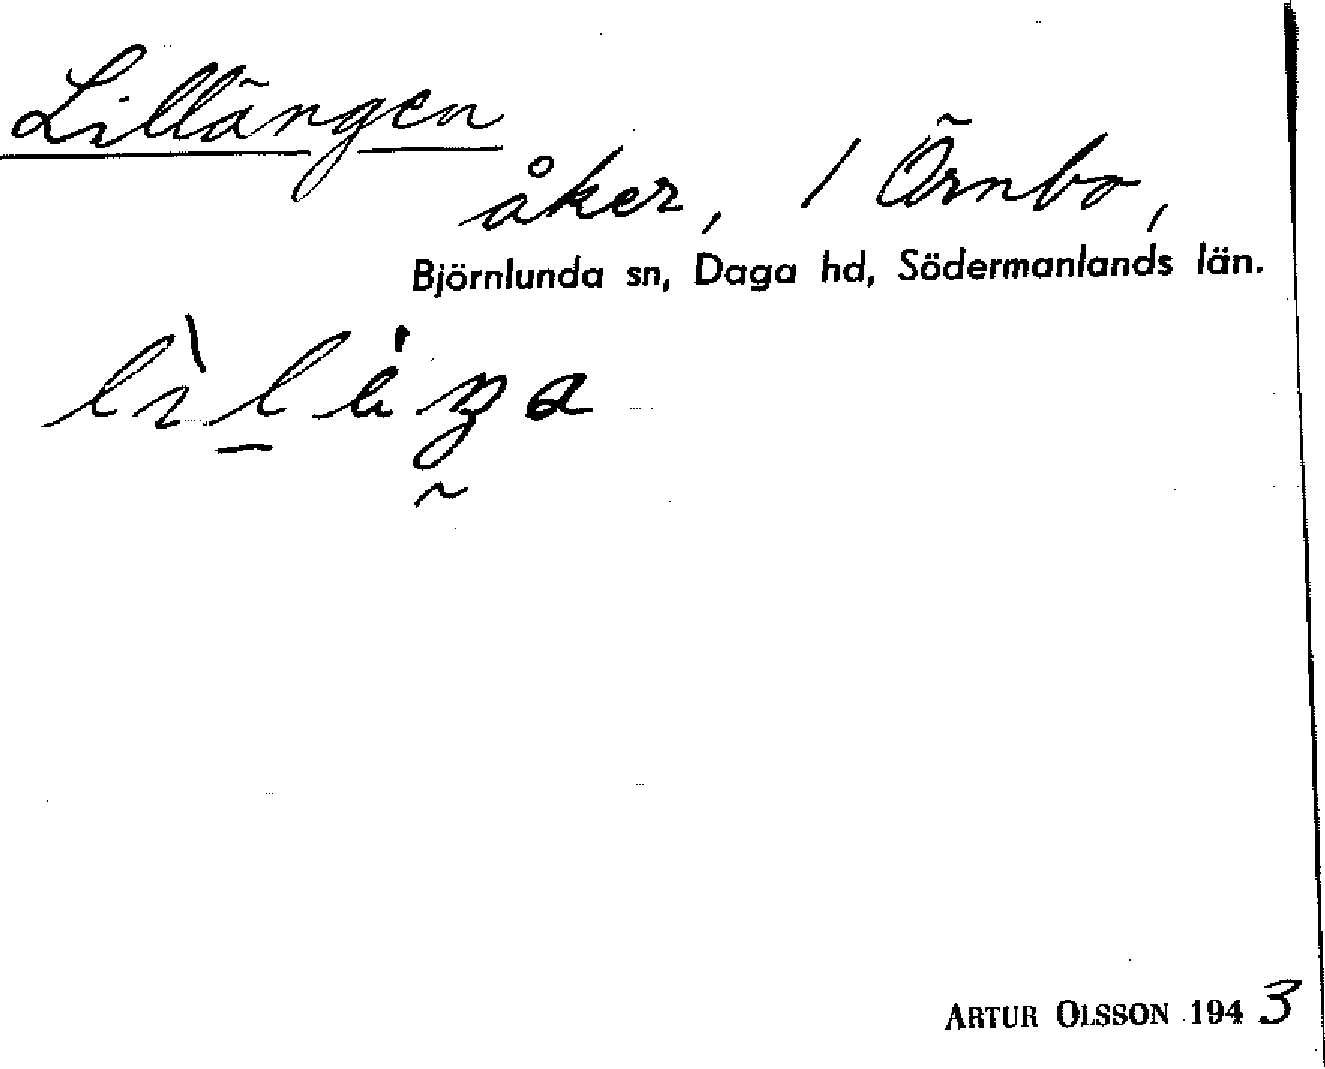 Lillängen
åker, 1 Örnbo,
Björnlunda sn, Daga hd, Södermanlands län.
ARTUR OLSSON 1943